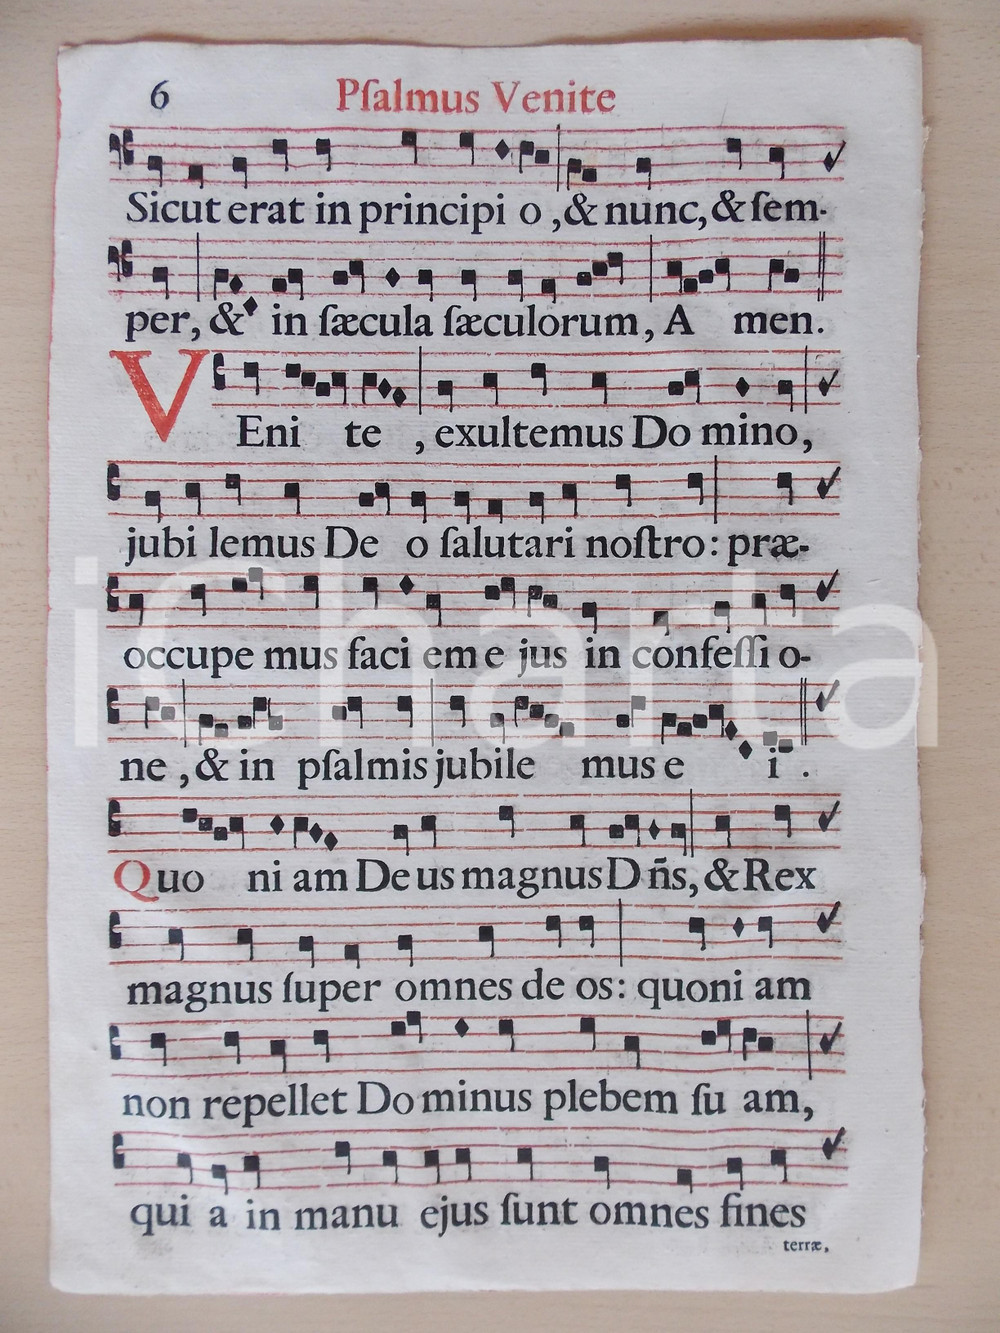 6 Pſalmus Venite
Sicut erat in principi o , & nunc, & ſem-
per, & in ſæcula ſæculorum, A men.
VEni te , exultemus Do mino,
jubi lemus De o ſalutari noſtro: præ-
occupe mus faci em e jus in confeſſi o-
ne , & in pſalmis jubile mus e i .
Quo ni am De us magnus D ñs, & Rex
magnus ſuper omnes de os: quoni am
non repellet Do minus plebem ſu am,
qui a in manu ejus ſunt omnes fines
terræ,
iCharta